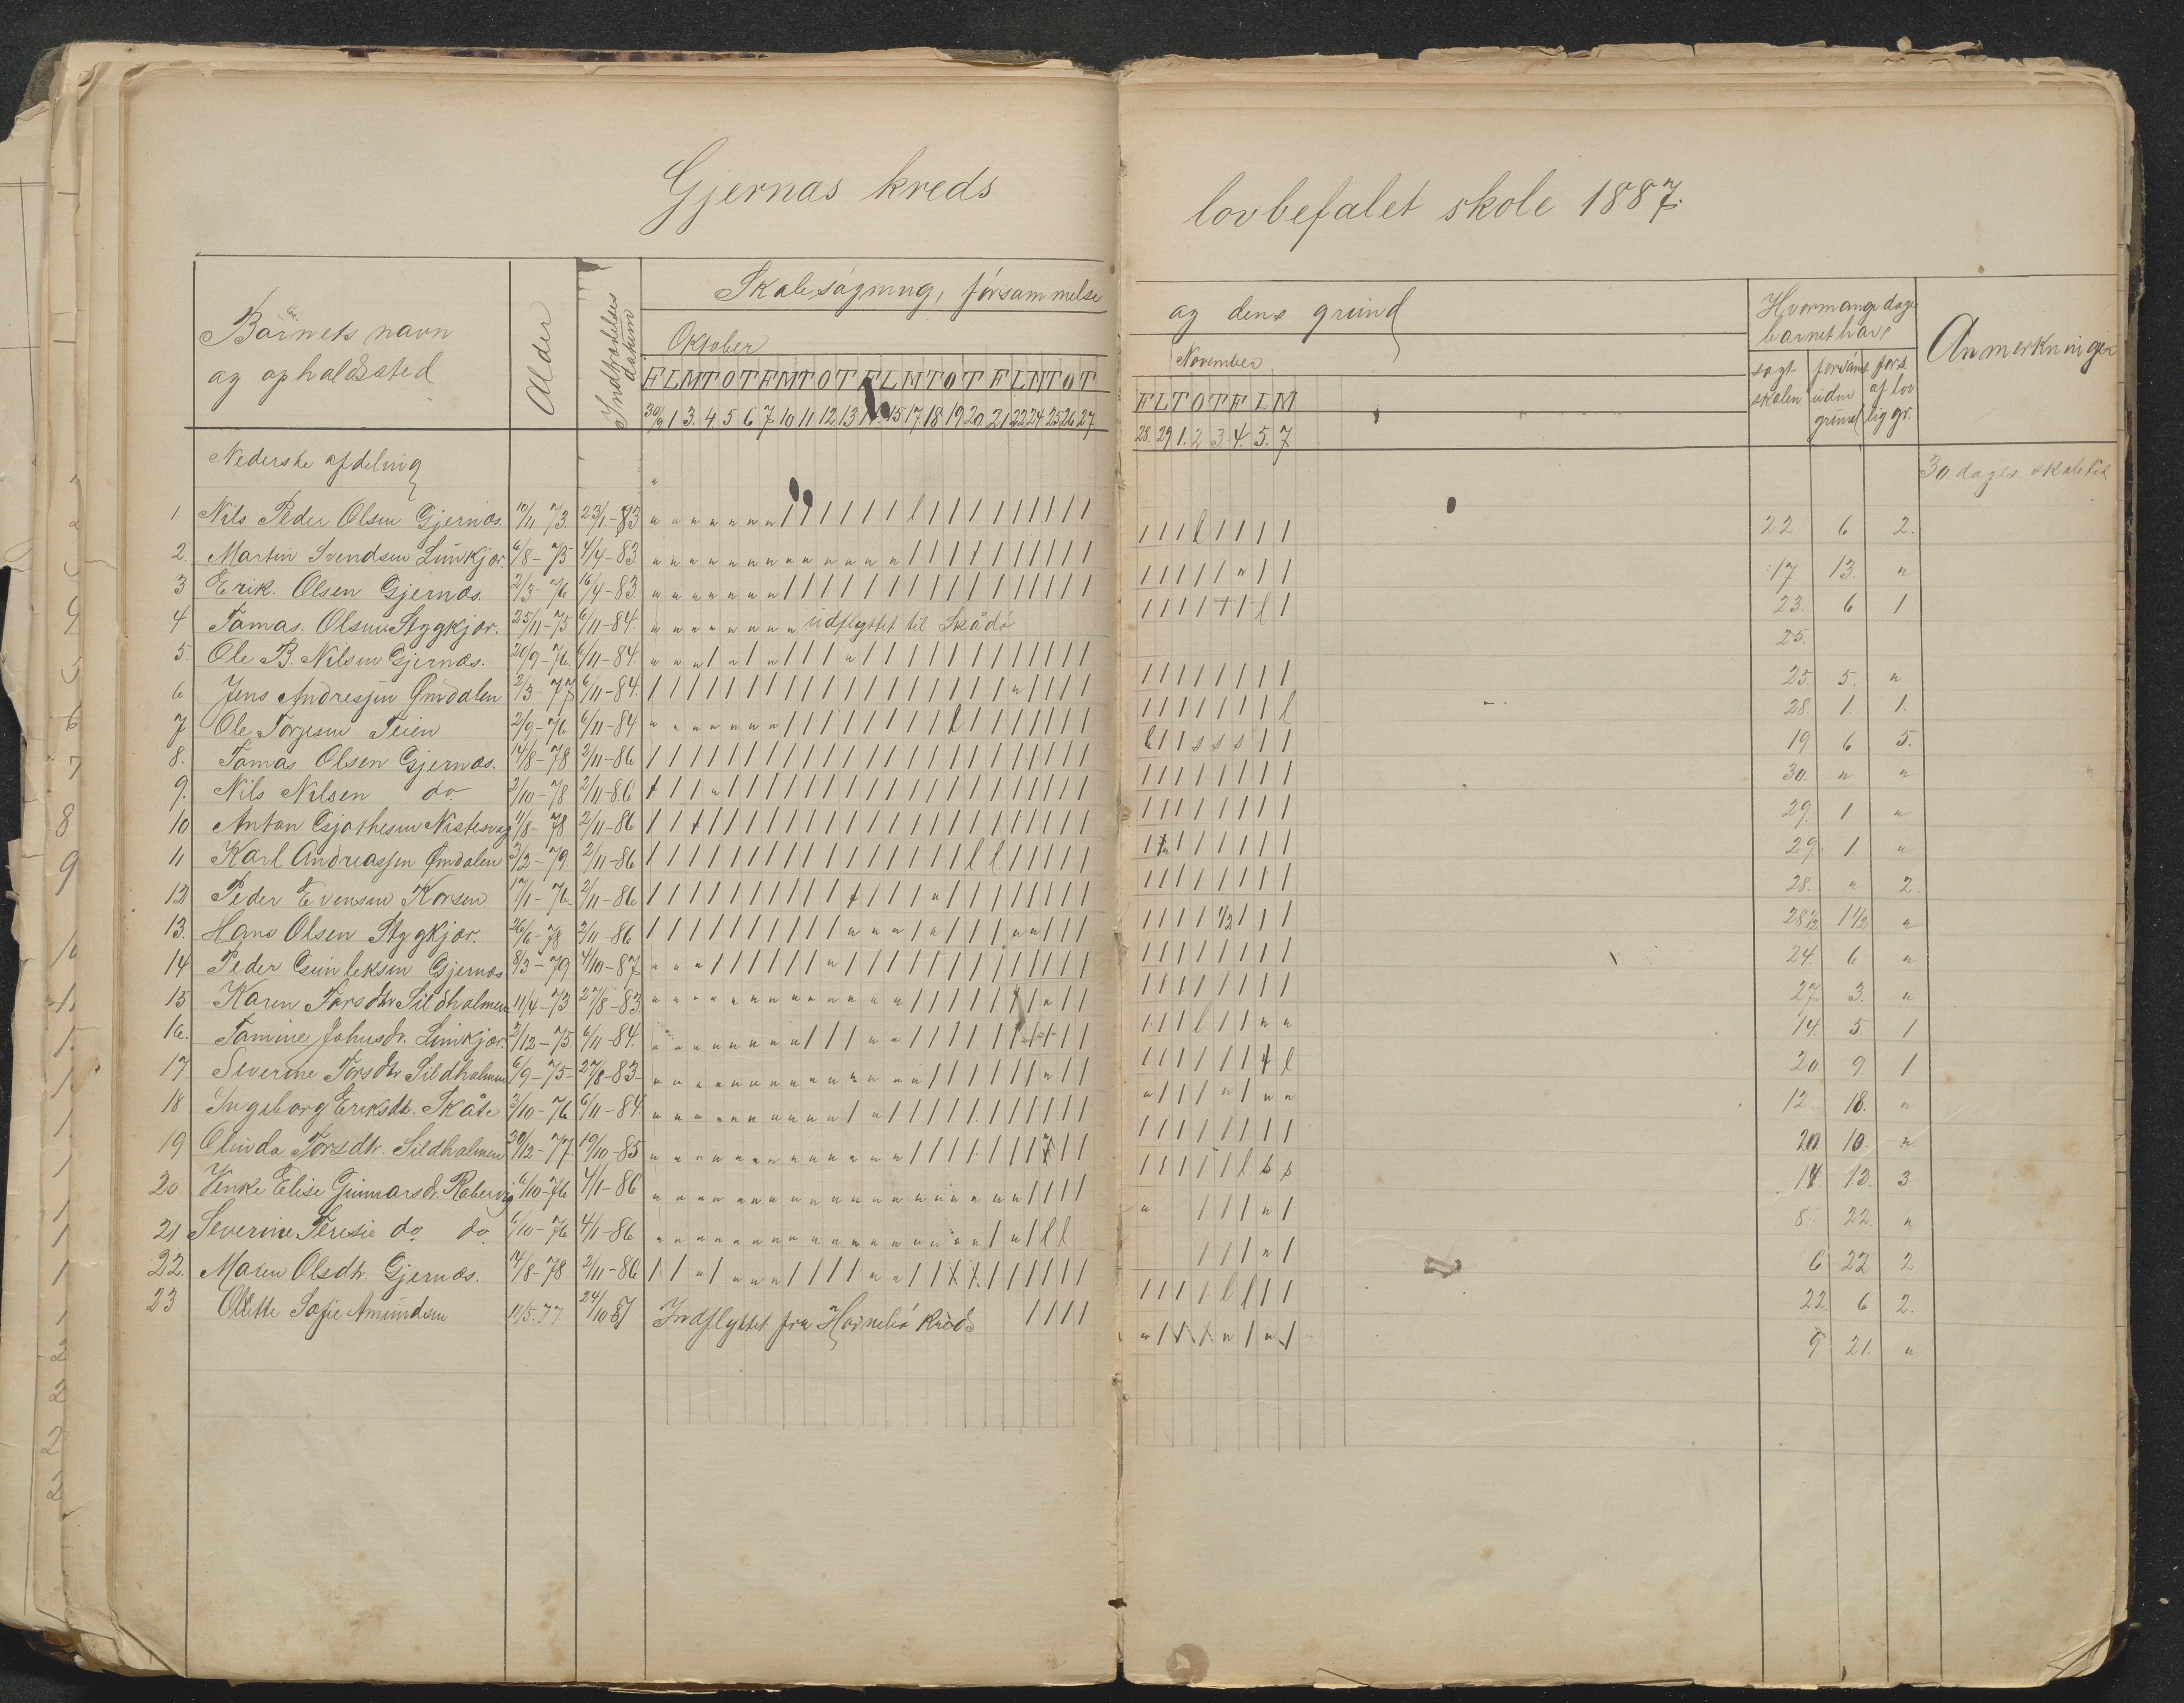 Gjernæs kreds lovbefalet skole 1887.
Barnets navn og opholdssted
Alder
Indtrædelses datum
Skolesøgning, forsømmelse og dens grund
Oktober
November
F L M T O T F M T O T F L M T O T F L M T O T
30/9 1 3. 4. 5 6 7 10 11 12. 13 14. 15 17. 18 19 20. 21 22 24 25 26 27
F L T O T F L M
28. 29 1. 2 3. 4. 5. 7
Hvormange dage barnet har
søgt skolen
forsømt uden grund
fors. af lovlig gr.
Anmerkninger
Nederste afdeling
30 dages skoletid
1 Nils Peder Olsen Gjernæs. 10/11 73. 23/1-83 22 6 2.
2. Martin Svendsen Limkjær. 6/8-75 4/4-83. 17 13. "
3 Erik. Olsen Gjernæs. 2/3-76 16/4-83. 23. 6 1
4 Tomas. Olsen Styggkjær. 25/11-75 6/11-84. udflyttet til Skådø 25.
5. Ole B. Nilsen Gjernæs. 20/9-76. 6/11-84. 25. 5. "
6 Jens Andreasen Ømdalen 2/3-77 6/11-84. 28. 1 1.
7 Ole Torjesen Teien 2/9-76 6/11-84 19 6 5.
8. Tomas Olsen Gjernæs. 14/8-78 2/11-86 30. " "
9. Nils Nilsen do. 2/10-78 2/11-86 29. 1 "
10 Anton 11/8-78 2/11-86 29. 1. "
11 Karl Andreassen Ømdalen 3/2-79 2/11-86 28. " 2.
12 Peder Evensen Korsen 17/1-76 2/11-86 28 1/2 1 1/2 "
13. Hans Olsen Styggkjær. 26/6-78 2/11-86 24. 6 "
14 Peder Gunleksen Gjernæs 8/3-79 4/10-87 27. 3. "
15 Karen Torsdtr Sildholmen 11/4-73 27/8-83. 14. 5 1
16. Tomine Johnsdr. Limkjær. 2/12-75. 6/11-84. 20. 9. 1
17 Severine Torsdtr Sildholmen 6/9-75- 27/8-83- 12. 18. "
18 Ingeborg Eriksdt. Skåte 3/10-76 6/11-84 20. 10. "
19 Olinda Torsdtr. Sildholmen 30/12-77. 19/10-85 14. 13. 3
20 Henke Elise Gunnarsdr. 6/10-76 4/1-86 8. 22. "
21 Severine Teresie do do. 6/10-76 4/1-86 6 22 2
22. Maren Olsdtr. Gjernæs. 14/8-78 2/11-86 22. 6 2.
23 Olette Sofie Amundsen 11/5.77 24/10 87 Indflyttet fra kreds 9. 21. "